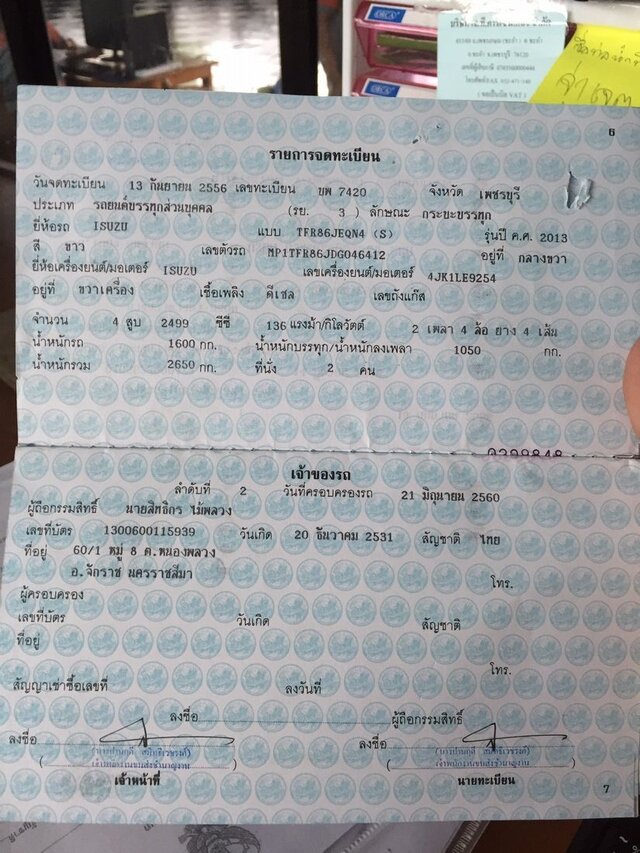 ORCA
ORCA
6
รายการจดทะเบียน
วันจดทะเบียน 13 กันยายน 2556 เลขทะเบียน บพ 7420 จังหวัด เพชรบุรี
ประเภท รถยนต์บรรทุกส่วนบุคคล (รย. 3 ) ลักษณะ กระบะบรรทุก
ยี่ห้อรถ ISUZU แบบ TFR86JEQN4 (S) รุ่นปี ค.ศ. 2013
สี ขาว เลขตัวรถ MP1TFR86JDG046412 อยู่ที่ กลางขวา
ยี่ห้อเครื่องยนต์/มอเตอร์ ISUZU เลขเครื่องยนต์/มอเตอร์ 4JK1LE9254
อยู่ที่ ขวาเครื่อง เชื้อเพลิง ดีเซล เลขถังแก๊ส
จำนวน 4 สูบ 2499 ซีซี 136 แรงม้า/กิโลวัตต์ 2 เพลา 4 ล้อ ยาง 4 เส้น
น้ำหนักรถ 1600 กก. น้ำหนักบรรทุก/น้ำหนักลงเพลา 1050 กก.
น้ำหนักรวม 2650 กก. ที่นั่ง 2 คน
เจ้าของรถ
ลำดับที่ 2 วันที่ครอบครองรถ 21 มิถุนายน 2560
ผู้ถือกรรมสิทธิ์ นายสิทธิกร ไม้พลวง
เลขที่บัตร 1300600115939 วันเกิด 20 ธันวาคม 2531 สัญชาติ ไทย
ที่อยู่ 60/1 หมู่ 8 ต.หนองพลวง
อ.จักราช นครราชสีมา โทร.
ผู้ครอบครอง
เลขที่บัตร วันเกิด สัญชาติ
ที่อยู่
โทร.
สัญญาเช่าซื้อเลขที่ ลงวันที่
ลงชื่อ ผู้ถือกรรมสิทธิ์
ลงชื่อ ลงชื่อ
เจ้าพนักงานขนส่งชำนาญงาน เจ้าพนักงานขนส่งชำนาญงาน
เจ้าหน้าที่ นายทะเบียน
7